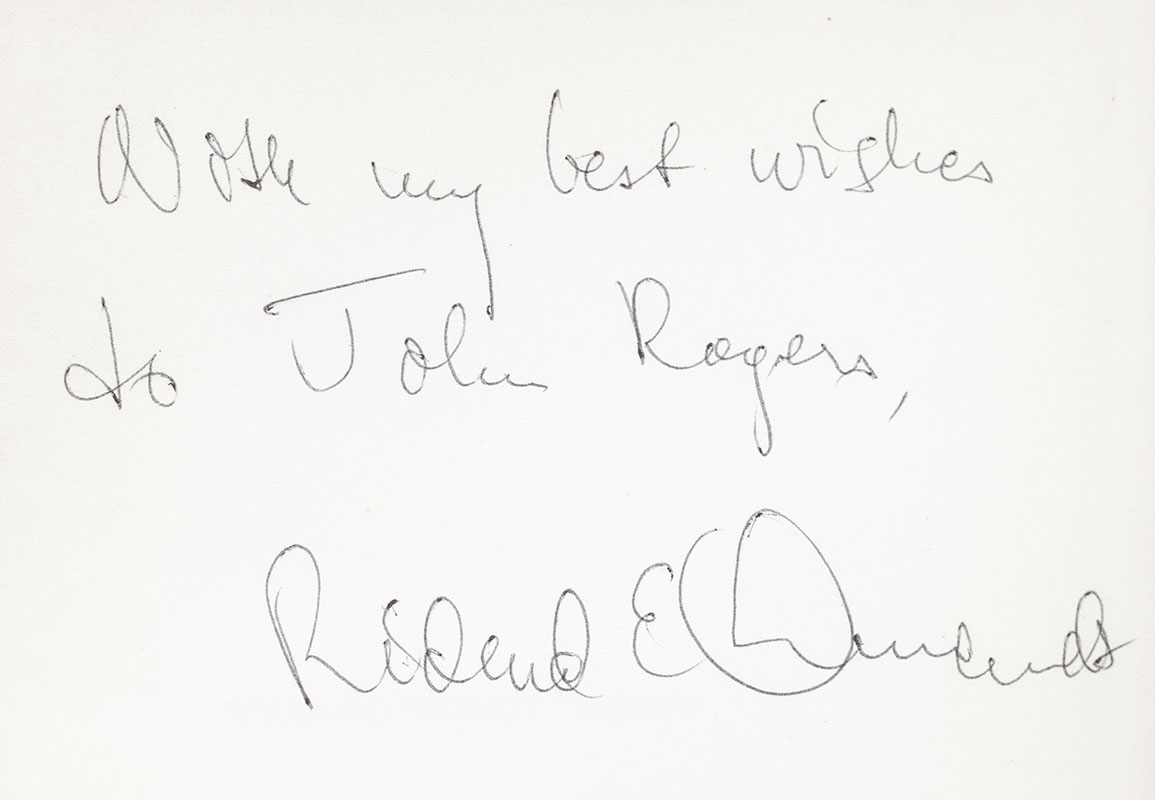 With my best wishes
to John Rogers,
Richard E